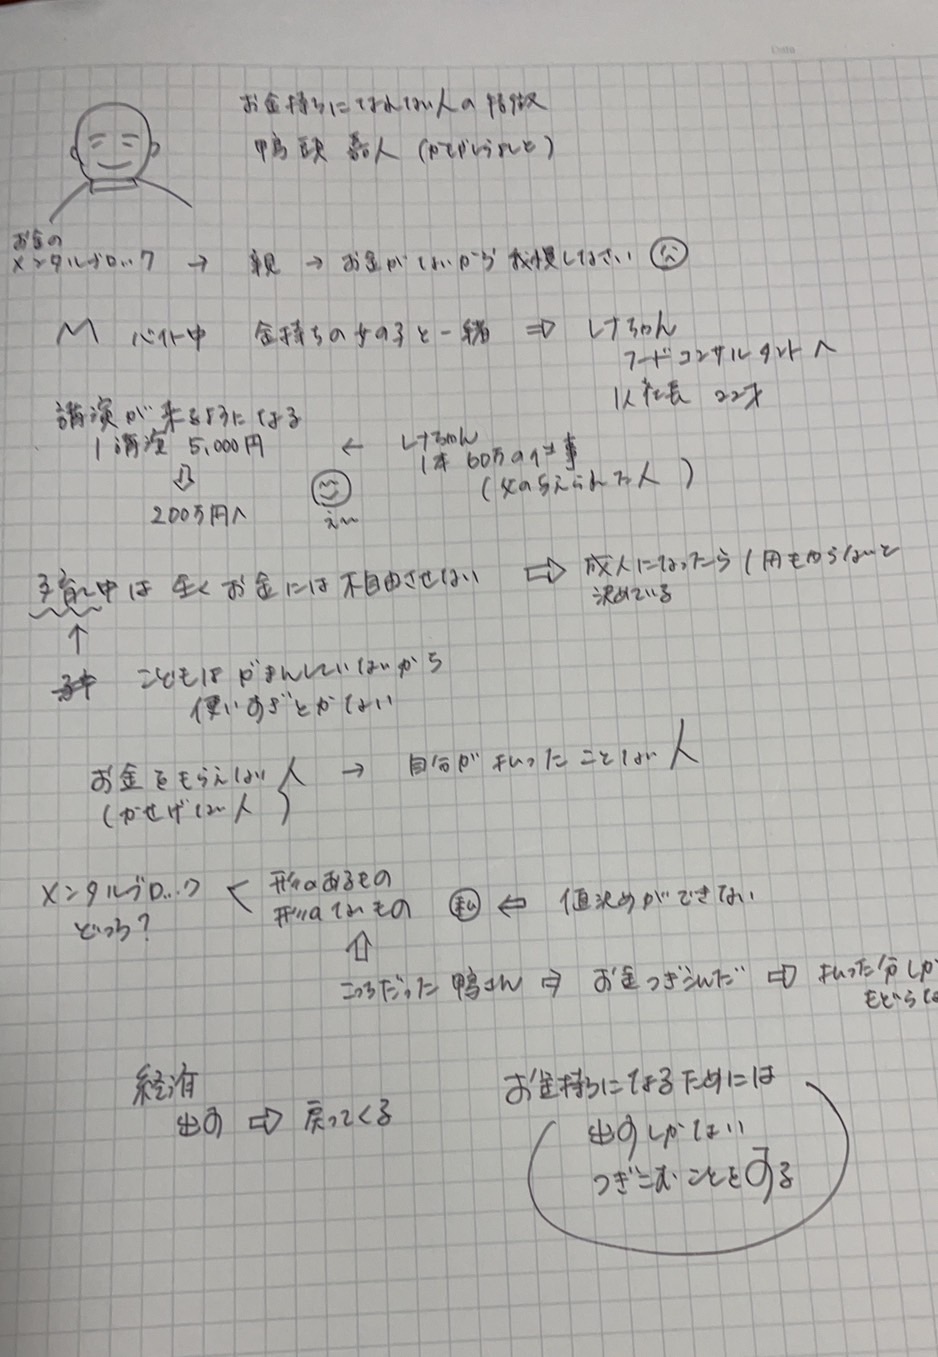 Date
お金持ちになれない人の特徴
鴨頭 嘉人 (かもがしらよしと)
お金の
メンタルブロック → 親 → お金がないから我慢しなさい
M バイト中 金持ちの女の子と一緒 ⇒ しけちゃん
フードコンサルタントへ
社長 22才
講演が来るようになる
1講演 5,000円 ← しけちゃん
1本 60万の仕事
(父の与えられた人)
⇩
200万円へ
えー
子育て中は全くお金には不自由させない ⇒ 成人になったら1円もやらないと
決めている
↑
こどもはがまんしていないから
使いすぎとかない
お金をもらえない人
(かせげない人 → 自分が払ったことない人
メンタルブロック < 形のあるもの
どっち? 形のないもの 私 ⇐ 値決めができない
⇧
こっちだった鴨さん ⇒ お金つぎこんだ ⇒ 払った分しか
もどらな
経済
出す ⇒ 戻ってくる
お金持ちになるためには
出すしかない
つぎこむことをする